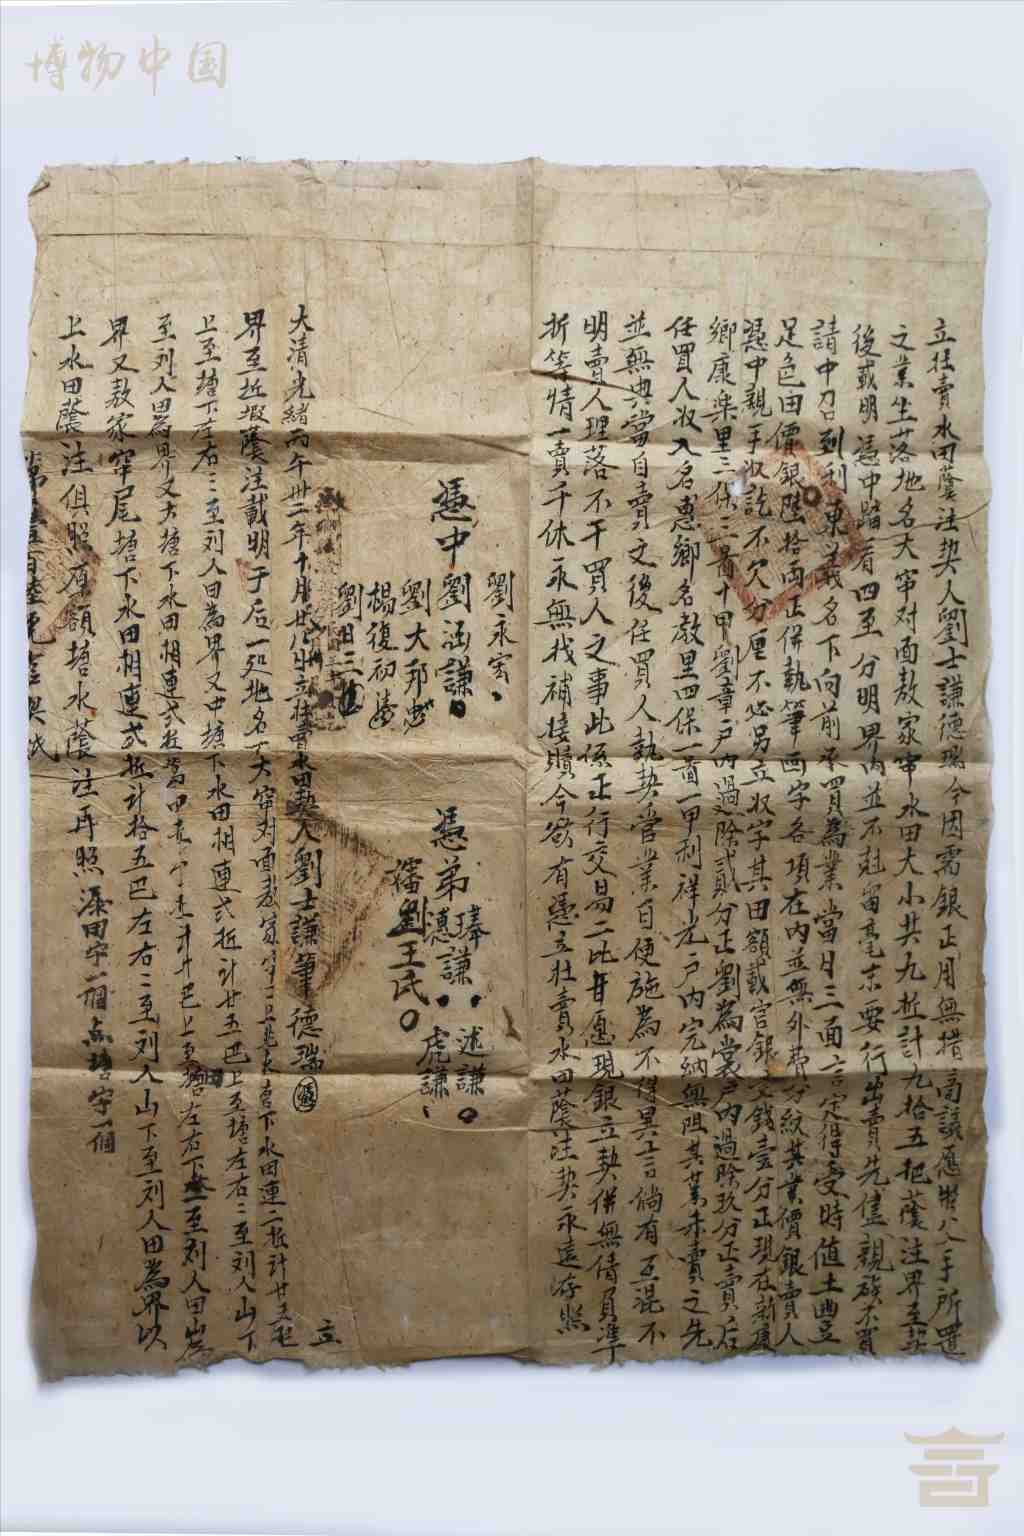 博物中国
立杜賣水田蔭注契人劉士謙德瑞今因需銀正用無措商議愿將父手所遺
之業坐落地名大窄对面敖家窄水田大小共九坵計九拾五把蔭注界至契
後載明憑中踏看四至分明界內並不尅留毫末要行出賣先儘親族不買
請中召到利東義名下向前承買為業當日三面言定得受時值土豐
足色田價銀陸拾両正併執筆画字各項在內並無外費分紋其業價銀賣人
憑中親手收訖不欠分厘不必另立收字其田額載官銀錢壹分正現在新康
鄉康樂里三保三苗十甲劉章户內過除貳分正劉為裳户內過除玖分正賣后
任買人收入名惠鄉名教里四保一苗一甲利祥光户內完納無阻其業未賣之先
並無典當自賣之後任買人執契管業自便施為不得異言倘有互混不
明賣人理落不干買人之事此係正行交易二比甘愿現銀立契併無債員準
折等情一賣千休永無找補接贖今欲有憑立杜賣水田蔭注契永遠存照
劉永宏
憑中劉涵謙
劉大邦
楊復初
劉日三
憑弟
述謙
虎謙
劉王氏
大清光緒丙午卅二年十月廿八日立杜賣水田契人劉士謙筆德瑞
立
界至坵塅蔭注載明于后一処地名大窄对面敖家窄水田連二坵計廿五把
上至塘下左右二至刘人田為界又中塘下水田相連式坵計廿五巴上至塘左右二至刘人山下
至刘人田為界又大塘下水田相連式坵上至塘左右下至刘人田山為
界又敖家窄尾塘下水田相連式坵計拾五巴左右二至刘人山下至刘人田為界以
上水田蔭注俱照原額塘水蔭注再照添田字一個点塘字一個